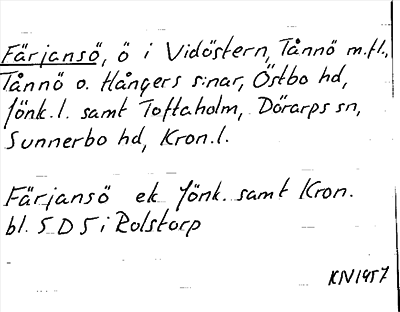 Färjansö, ö i Vidöstern, Tånnö m.fl.,
Tånnö o. Hångers s:nar, Östbo hd,
Jönk.l. samt Toftaholm, Dörarps sn,
Sunnerbo hd, Kron.l.
Färjansö ek Jönk. samt Kron.
bl. 5 D 5 i Rolstorp
KN 1957